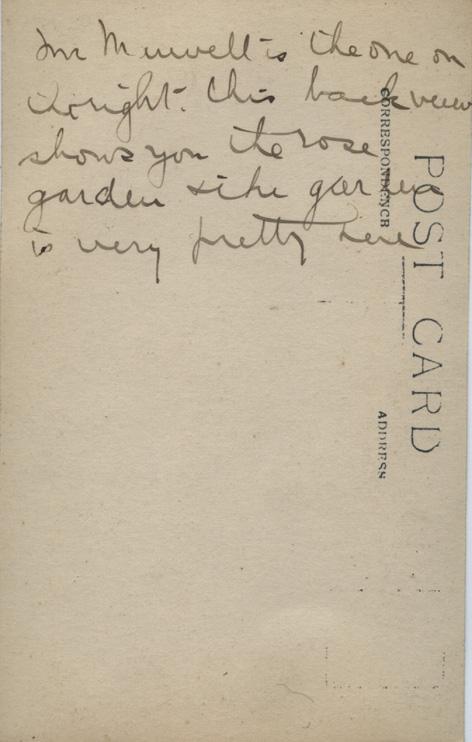 Mr Muwell is the one on
the right. This back view
shows you the rose
garden & the garden
is very pretty here
POST CARD
CORRESPONDENCE
ADDRESS